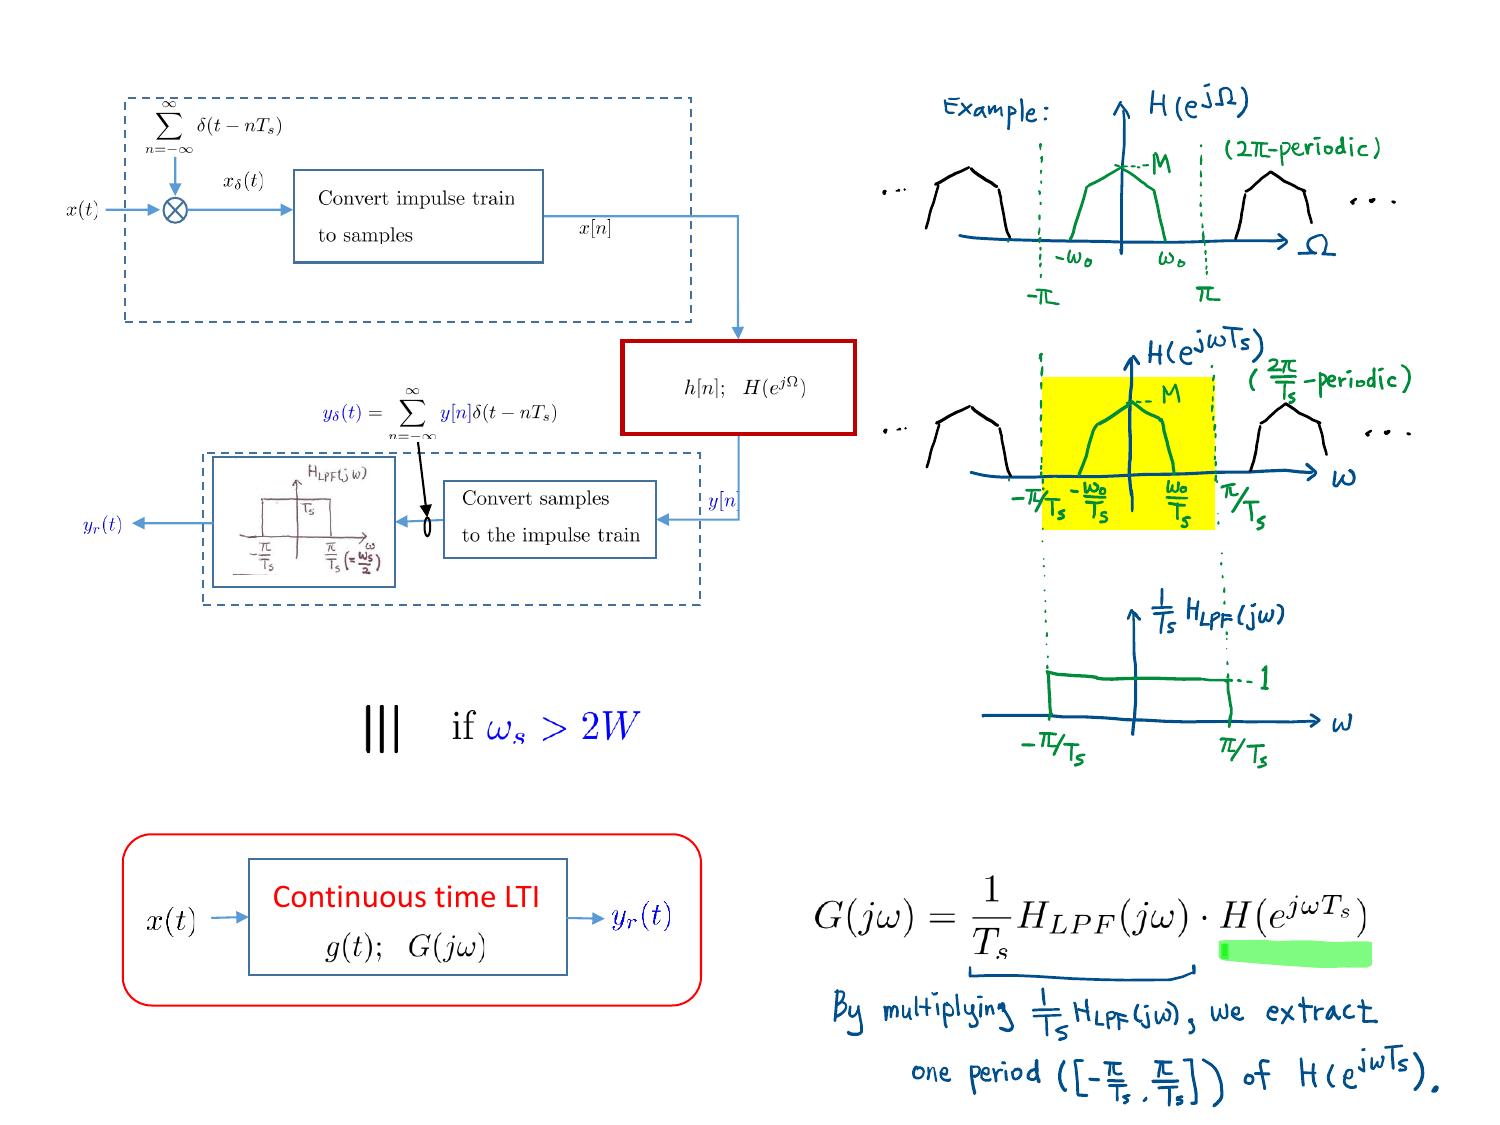 ∞
∑ δ(t − nT_s)
n=−∞
x_δ(t)
x(t)
Convert impulse train
to samples
x[n]
h[n]; H(e^{jΩ})
∞
y_δ(t) = ∑ y[n]δ(t − nT_s)
n=−∞
H_LPF(jω)
T_s
ω
−π/T_s π/T_s (=ω_s/2)
Convert samples
to the impulse train
y[n]
y_r(t)
||| if ω_s > 2W
Continuous time LTI
x(t)
g(t); G(jω)
y_r(t)
Example: H(e^{jΩ})
(2π-periodic)
M
... ...
-ω₀ ω₀ Ω
-π π
H(e^{jωT_s})
(2π/T_s -periodic)
M
... ...
-π/T_s -ω₀/T_s ω₀/T_s π/T_s ω
1/T_s H_LPF(jω)
1
ω
-π/T_s π/T_s
G(jω) = 1/T_s H_{LPF}(jω) · H(e^{jωT_s})
By multiplying 1/T_s H_LPF(jω), we extract
one period ([-π/T_s, π/T_s]) of H(e^{jωT_s}).